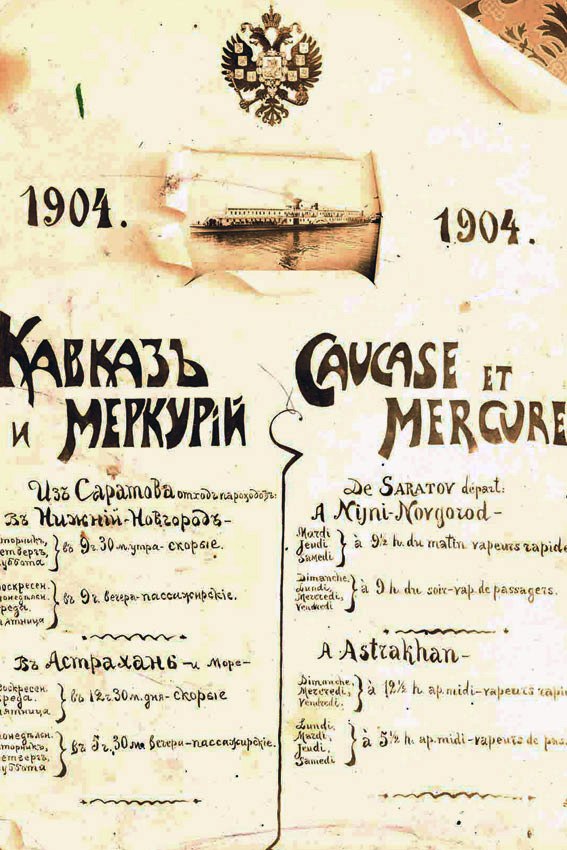 1904.
1904.
КАВКАЗЪ
И МЕРКУРІЙ
Изъ Саратова отходъ пароходовъ:
Въ Нижній-Новгородъ-
вторникъ,
четвергъ,
суббота
въ 9 ч. 30 м. утра- скорые.
воскресен.
понедѣльн.
среда.
пятница
въ 9 ч. вечера-пассажирскіе.
Въ Астрахань -и Море-
воскресен.
среда.
пятница
въ 12 ч 30 м. дня- скорые
понедѣльн.
вторникъ,
четвергъ,
суббота
въ 5 ч. 30 ма вечера-пассажирскіе.
CAUCASE ET
MERCURE
De SARATOV départ:
A Nijni-Novgorod-
Mardi
Jeudi
Samedi
à 9½ h. du matin vapeurs rapide
Dimanche,
Lundi,
Mercredi,
Vendredi
à 9 h. du soir-vap. de passagers.
A Astrakhan-
Dimanche,
Mercredi,
Vendredi.
à 12½ h ap. midi-vapeurs rapi
Lundi,
Mardi,
Jeudi,
Samedi
à 5½ h. ap. midi-vapeurs de pas.